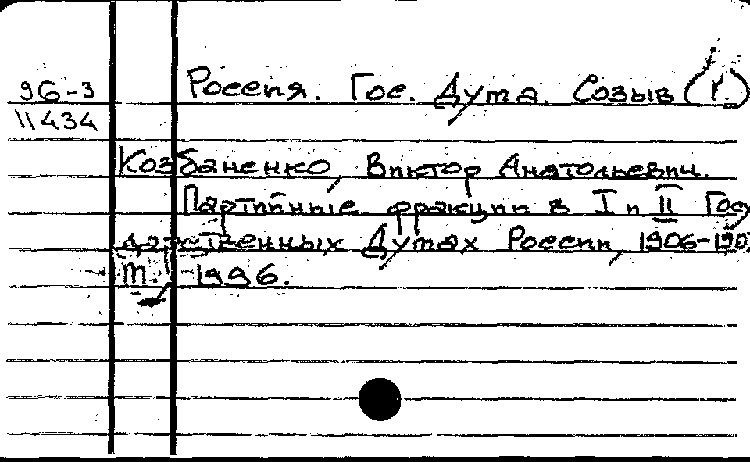 96-3
11434
Россия. Гос. Дума. Созыв (1.)
Козбаненко, Виктор Анатольевич.
Партийные фракции в I и II Госу
дарственных Думах России, 1906-190
М., 1996.